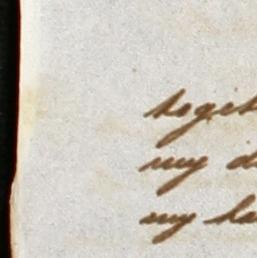 togeth
my d
my la